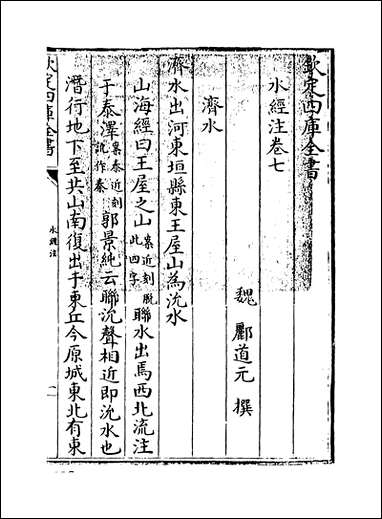 欽定四庫全書
水經注卷七
魏 酈道元 撰
濟水
濟水出河東垣縣東王屋山為沇水
山海經曰王屋之山案近刻脫此四字聯水出焉西北流注
于泰澤案泰近刻訛作秦郭景純云聯沇聲相近即沇水也
潛行地下至共山南復出于東丘今原城東北有東
欽定四庫全書
水經注